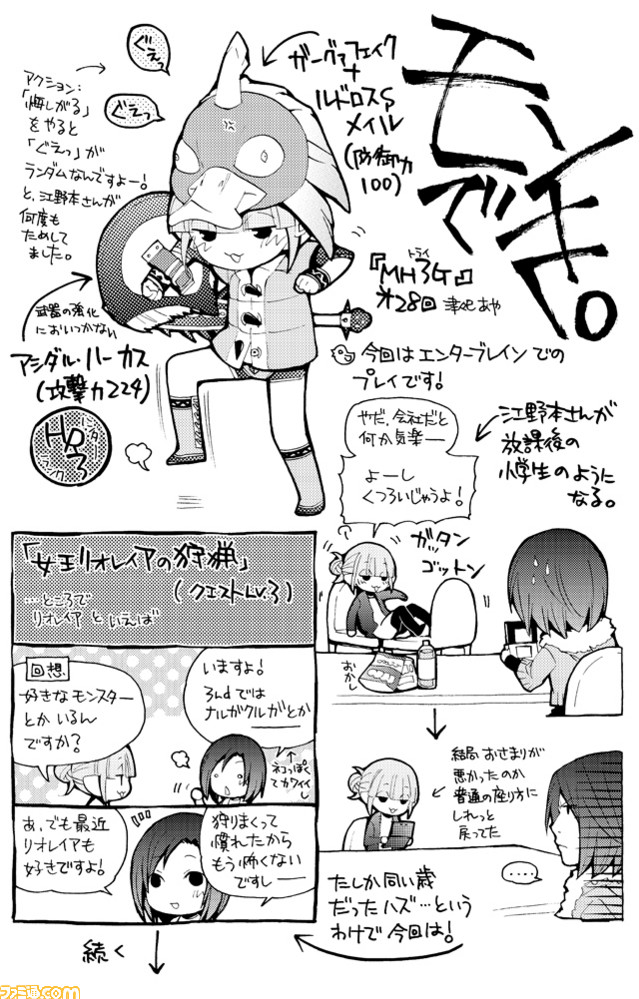 モンハンで。
『MH3G』
トライ
オ28回 津々巳あや
ガーグァフェイク
+
ルドロスS
メイル
(防御力
100)
ぐえっ
ぐえっ
アクション:
「悔しがる」
をやると
「ぐえっ」が
ランダムなんですよー!
と、江野本さんが
何度も
ためして
ました。
武器の強化
においつかない
アシダル・ハーカス
(攻撃力224)
ハンター
ランク
HR3
今回はエンターブレインでの
プレイです!
やだ、会社だと
何か気楽ー
よーし
くつろいじゃうよ!
江野本さんが
放課後の
小学生のように
なる。
ガッタン
ゴットン
おかし
結局おさまりが
悪かったのか
普通の座り方に
しれっと
戻ってた
……
たしか同い歳
だったハズ…という
わけで今回は!
「女王リオレイアの狩猟」
(クエストLv.3)
…ところで
リオレイアといえば
回想
好きなモンスター
とかいるん
ですか?
いますよ!
3rdでは
ナルガクルガとか
ネコっぽく
てカワイイし
あ、でも最近
リオレイアも
好きですよ!
狩りまくって
慣れたから
もう怖くない
ですしー
続く
ファミ通.com